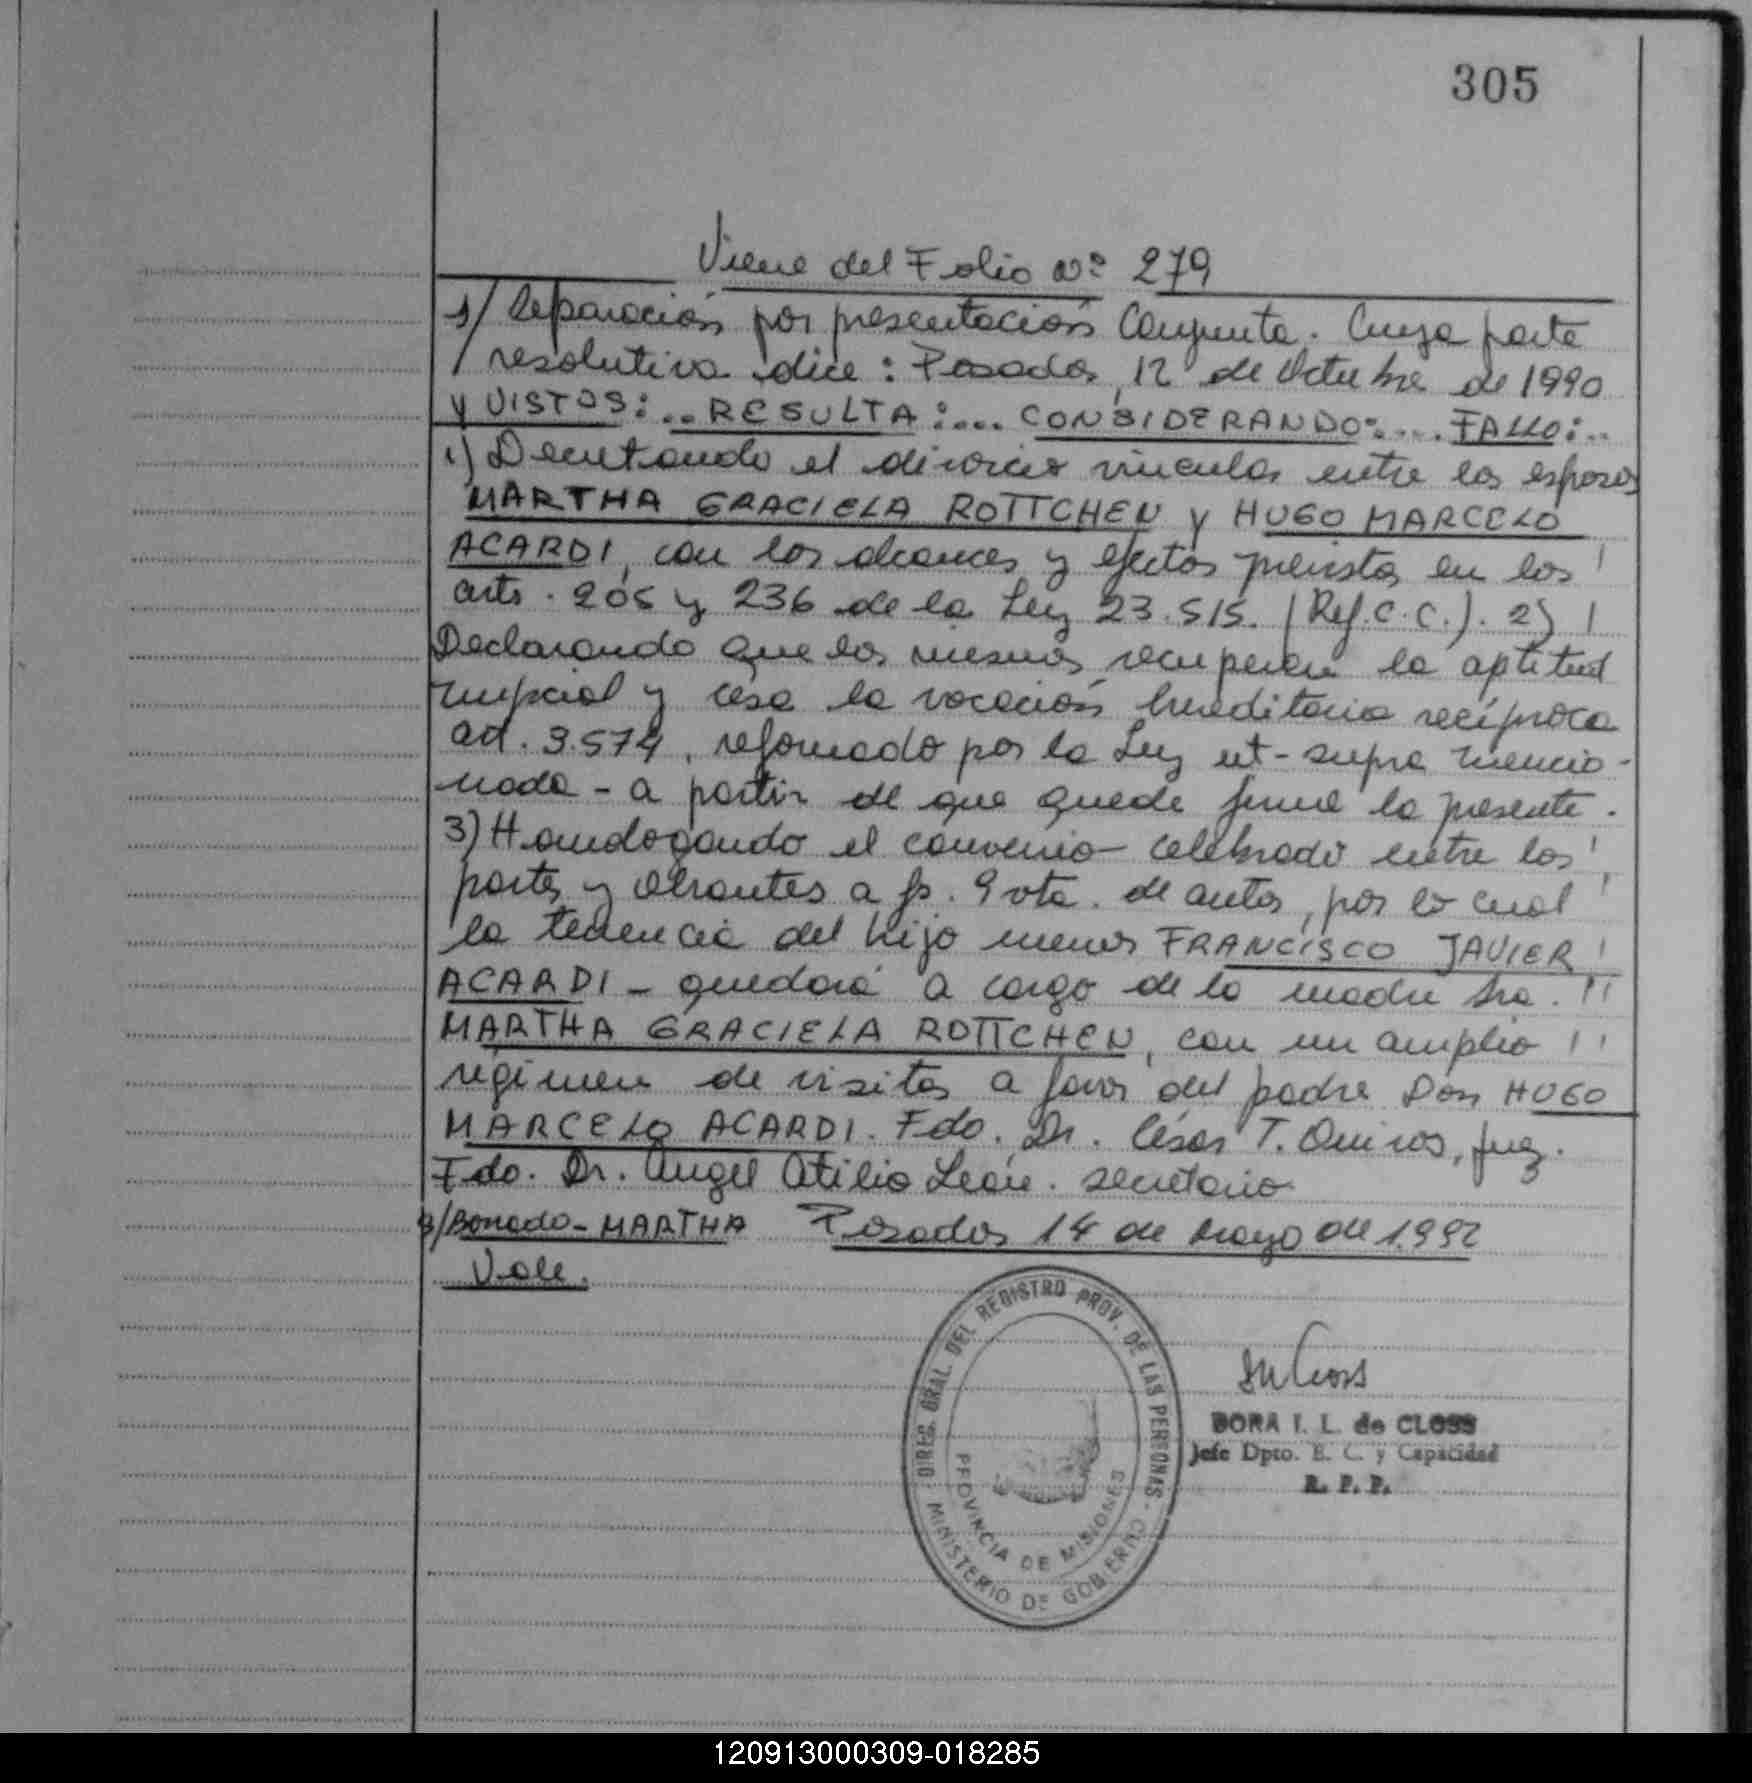 305
Viene del Folio Nº 279
s/ Separación por presentación Conjunta. Cuya parte
resolutiva dice: Posadas, 12 de Octubre de 1990
Y VISTOS:.. RESULTA:.... CONSIDERANDO:.... FALLO:..
1) Decretando el divorcio vincular entre los esposos
MARTHA GRACIELA ROTTCHEN y HUGO MARCELO
ACARDI, con los alcances y efectos previstos en los
arts. 205 y 236 de la Ley 23.515. (Ref. C.C.). 2)
Declarando que los mismos recuperan la aptitud
nupcial y cesa la vocación hereditaria recíproca
art. 3.574, reformado por la Ley ut-supra mencio-
nada - a partir de que quede firme la presente.
3) Homologando el convenio celebrado entre las
partes y obrantes a fs. 9 vta. de autos, por lo cual
la tenencia del hijo menor FRANCISCO JAVIER
ACARDI - quedará a cargo de la madre Sra.
MARTHA GRACIELA ROTTCHEN, con un amplio
régimen de visitas a favor del padre Don HUGO
MARCELO ACARDI. Fdo. Dr. César T. Quiros, Juez.
Fdo. Dr. Angel Atilio León. Secretario
S/Borrado - MARTHA Posadas 14 de Mayo de 1.992
Vale.
DIREC. GRAL. DEL REGISTRO PROV. DE LAS PERSONAS
MINISTERIO DE GOBIERNO
PROVINCIA DE MISIONES
DORA I. L. de CLOSS
Jefe Dpto. E. C. y Capacidad
R. P. P.
120913000309-018285